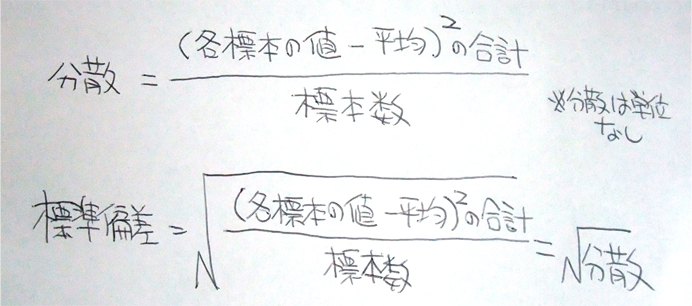 分散 = (各標本の値 - 平均)²の合計 / 標本数
※分散は単位
なし
標準偏差 = √((各標本の値 - 平均)²の合計 / 標本数) = √分散